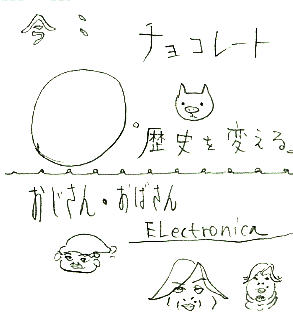 今
チョコレート
歴史を変える。
おじさん・おばさん
Electronica